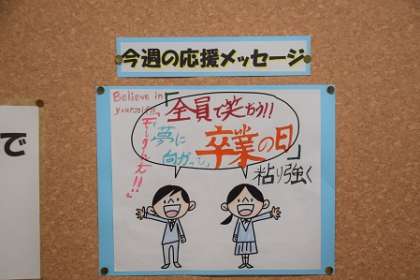 今週の応援メッセージ
Believe in
yourself!
「全員で笑おう!!
卒業の日」
夢に
向かって
粘り強く
で